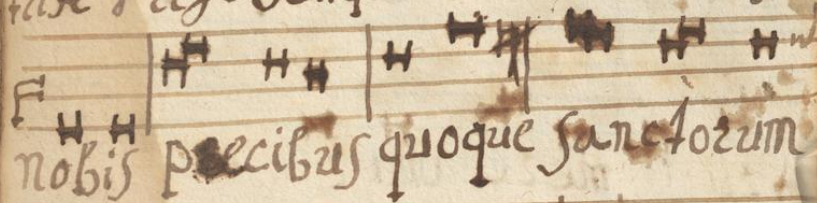 nobis precibus quoque sanctorum